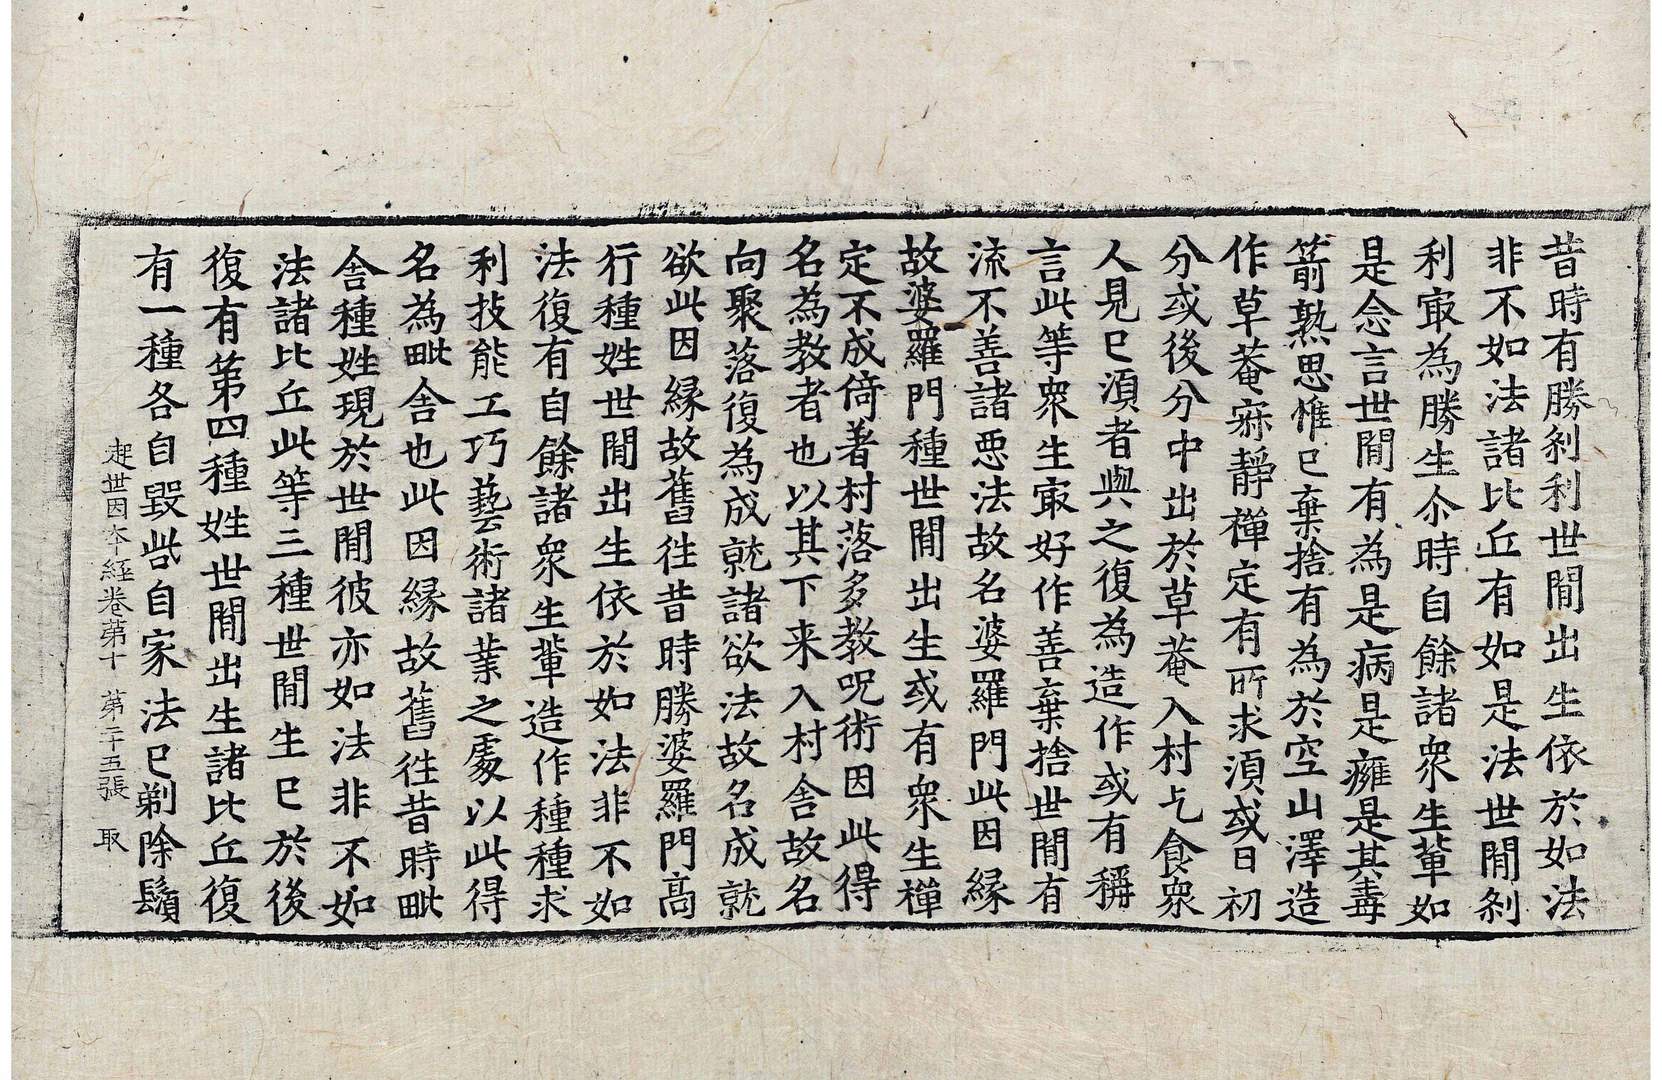 昔時有勝刹利世閒出生依於如法
非不如法諸比丘有如是法世閒刹
利㝡為勝生尒時自餘諸衆生輩如
是念言世閒有為是病是癰是其毒
箭熟思惟已棄捨有為於空山澤造
作草菴寂靜禪定有所求湏或日初
分或後分中出於草菴入村乞食衆
人見已湏者與之復為造作或有稱
言此等衆生㝡好作善棄捨世閒有
流不善諸惡法故名婆羅門此因縁
故婆羅門種世閒出生或有衆生禪
定不成倚著村落多教呪術因此得
名為教者也以其下来入村舍故名
向聚落復為成就諸欲法故名成就
欲此因縁故舊往昔時勝婆羅門高
行種姓世閒出生依於如法非不如
法復有自餘諸衆生輩造作種種求
利技能工巧藝術諸業之處以此得
名為毗舍也此因縁故舊往昔時毗
舍種姓現於世閒彼亦如法非不如
法諸比丘此等三種世閒生已於後
復有第四種姓世閒出生諸比丘復
有一種各自毀呰自家法已剃除鬚
起世因本經卷第十　第二十五張　取